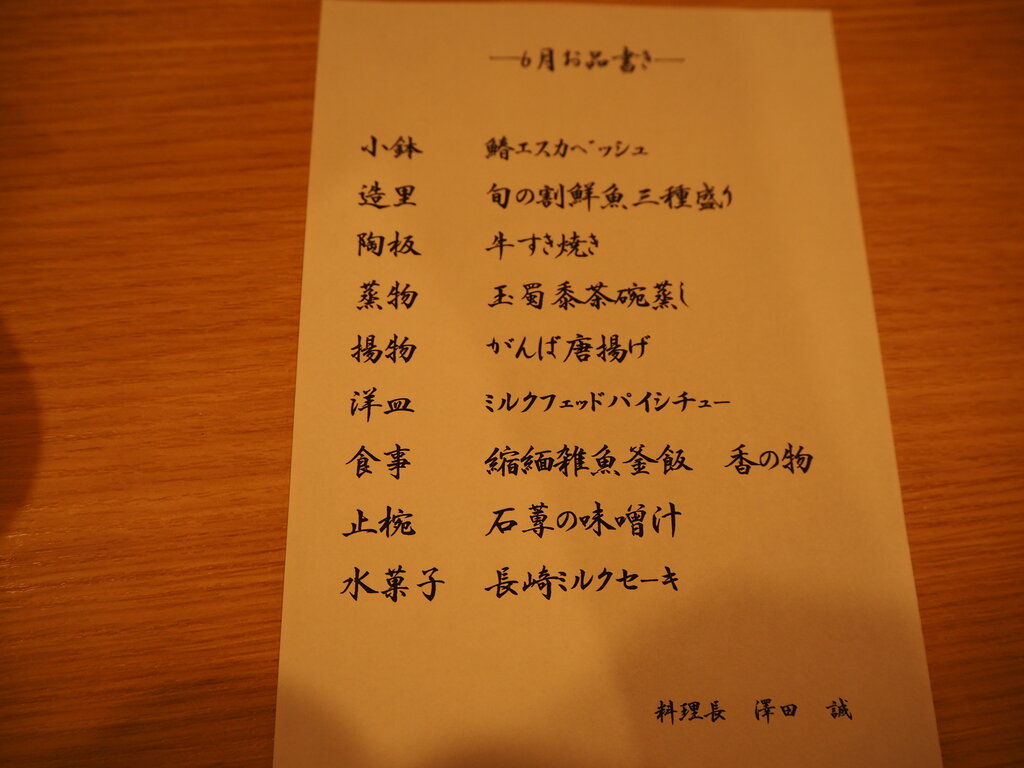 ―6月お品書き―
小鉢 鰆エスカベッシュ
造里 旬の割鮮魚三種盛り
陶板 牛すき焼き
蒸物 玉蜀黍茶碗蒸し
揚物 がんば唐揚げ
洋皿 ミルクフェッドパイシチュー
食事 縮緬雑魚釜飯 香の物
止椀 石蓴の味噌汁
水菓子 長崎ミルクセーキ
料理長 澤田 誠